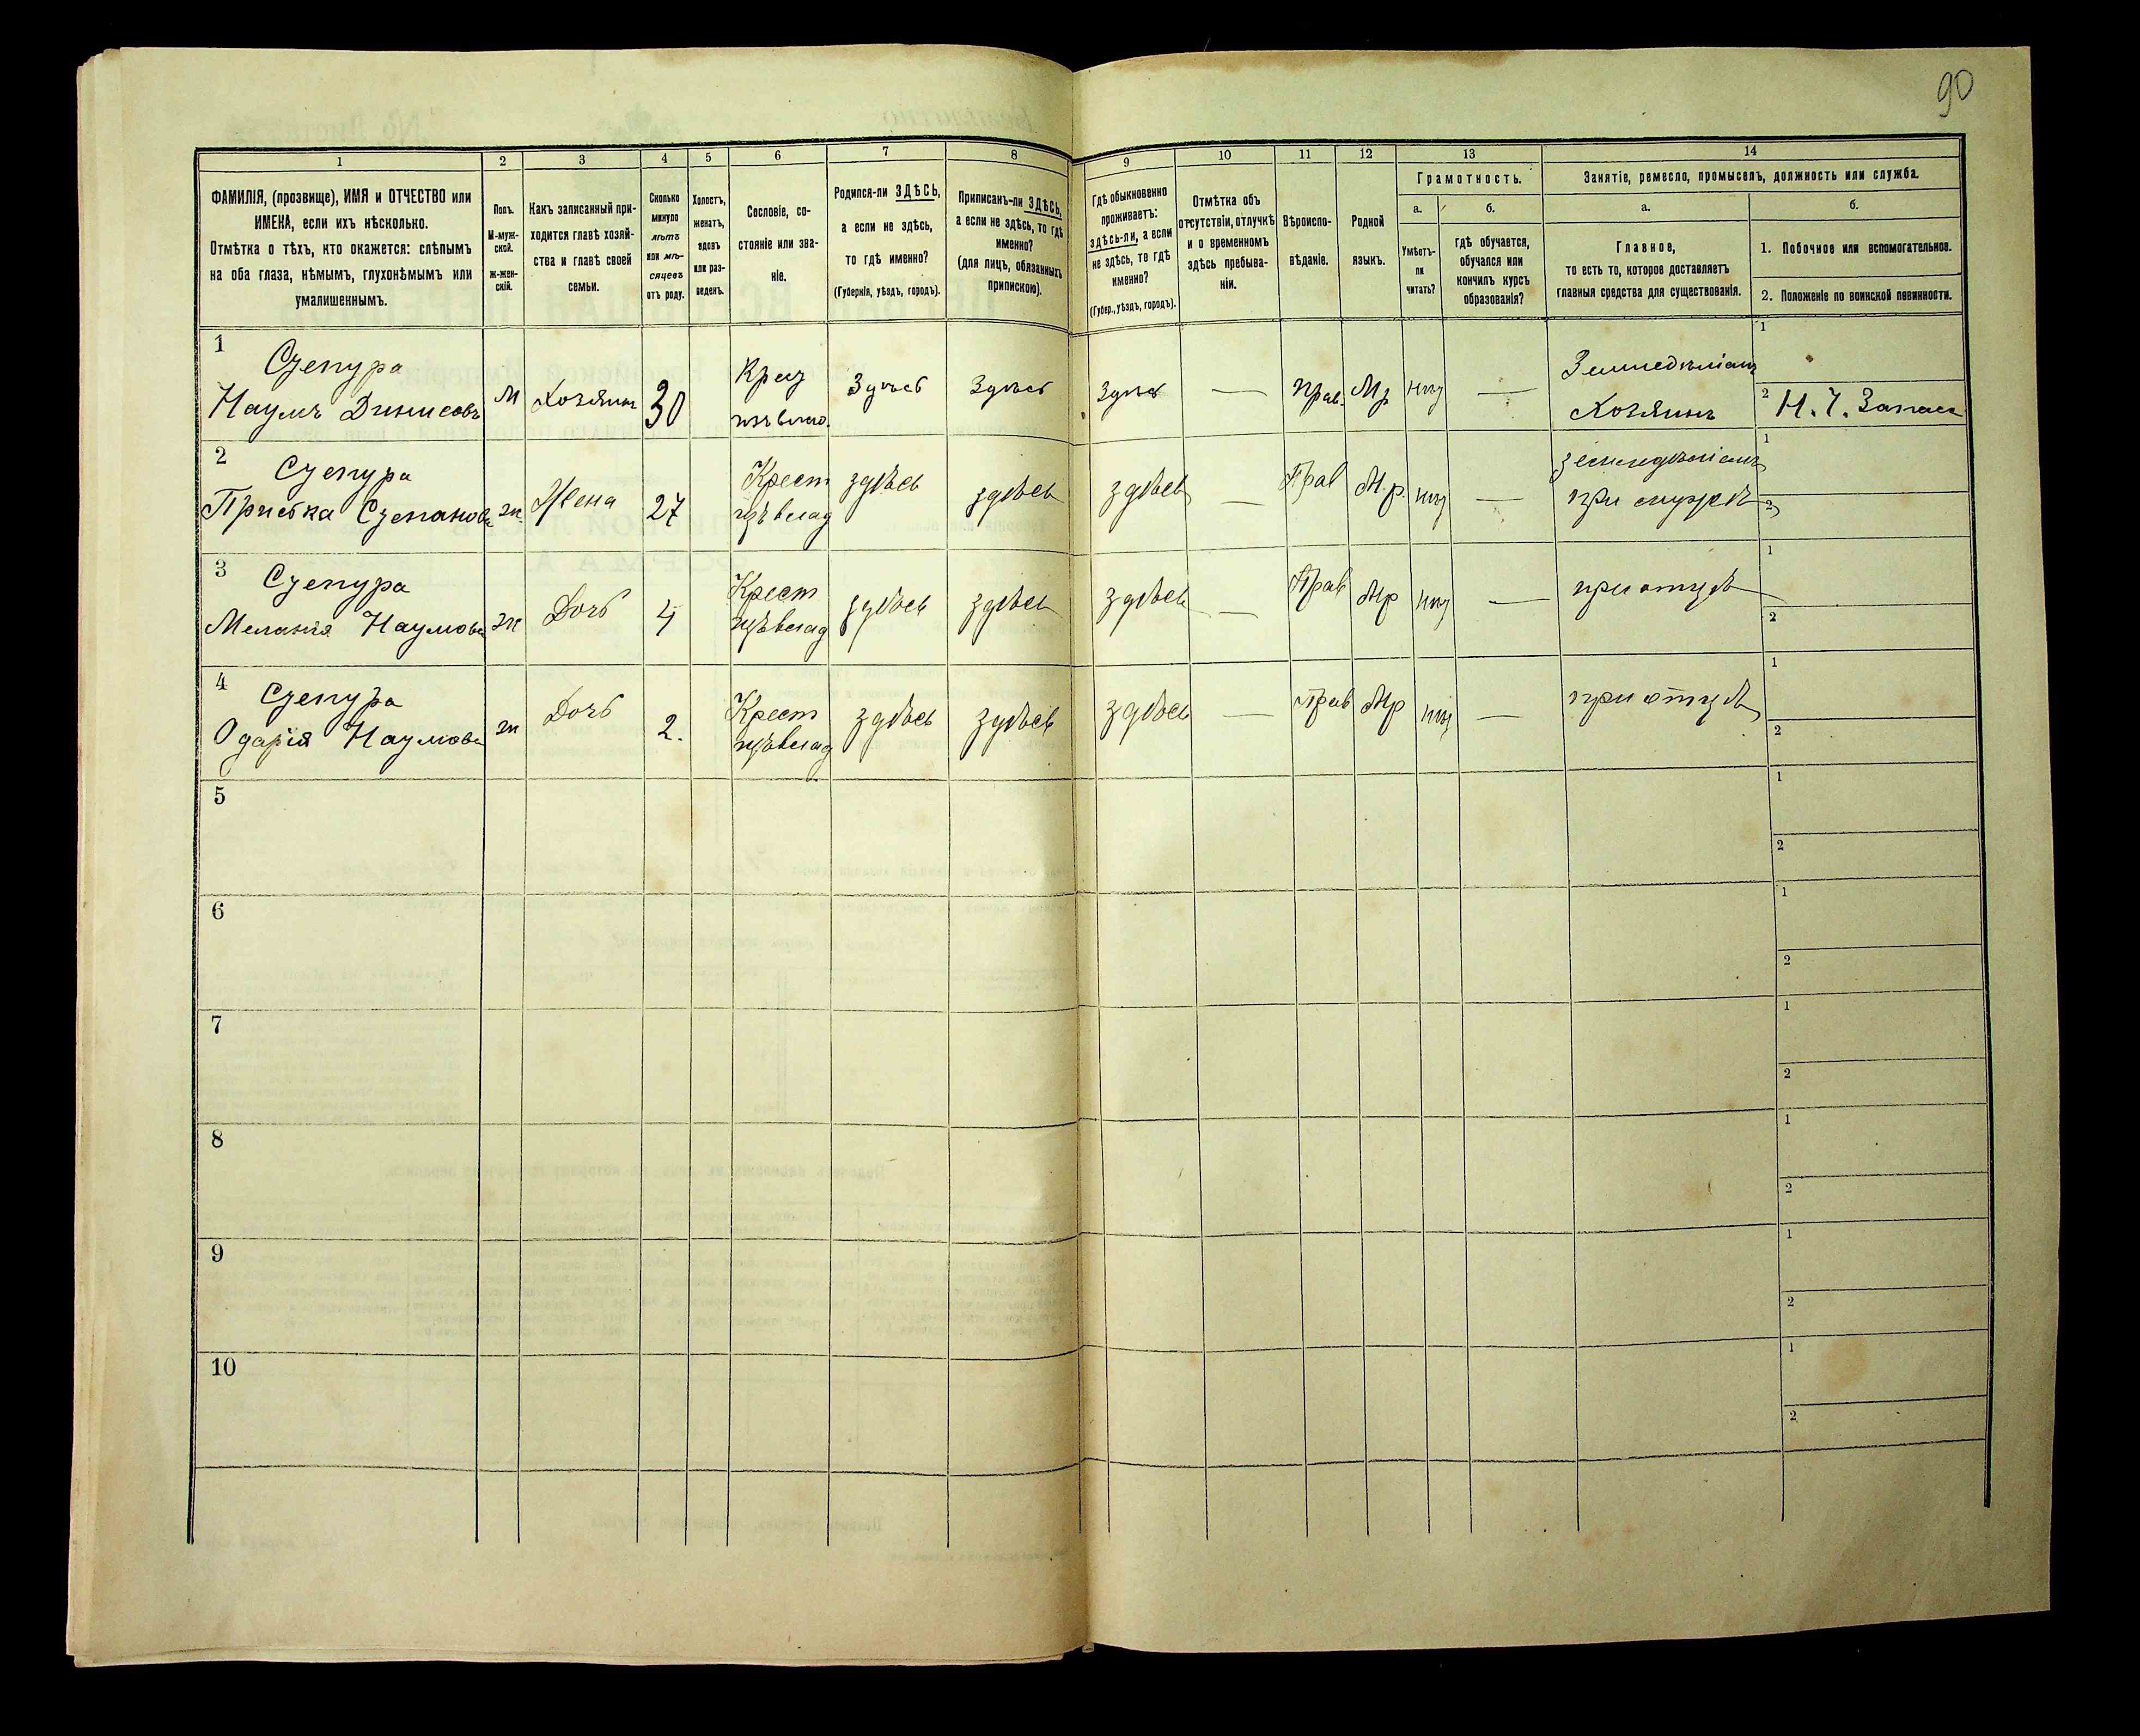 90
1 2 3 4 5 6 7 8 9 10 11 12 13 14
ФАМИЛІЯ, (прозвище), ИМЯ и ОТЧЕСТВО или
ИМЕНА, если ихъ нѣсколько.
Отмѣтка о тѣхъ, кто окажется: слѣпымъ
на оба глаза, нѣмымъ, глухонѣмымъ или
умалишеннымъ.
Полъ.
М-муж-
ской.
Ж-жен-
скій.
Какъ записанный при-
ходится главѣ хозяй-
ства и главѣ своей
семьи.
Сколько
минуло
лѣтъ
или мѣ-
сяцевъ
отъ роду.
Холостъ,
женатъ,
вдовъ
или раз-
веденъ.
Сословіе, со-
стояніе или зва-
ніе.
Родился-ли ЗДѢСЬ,
а если не здѣсь,
то гдѣ именно?
(Губернія, уѣздъ, городъ).
Приписанъ-ли ЗДѢСЬ,
а если не здѣсь, то гдѣ
именно?
(для лицъ, обязанныхъ
припискою).
Гдѣ обыкновенно
проживаетъ:
здѣсь-ли, а если
не здѣсь, то гдѣ
именно?
(Губер., уѣздъ, городъ).
Отмѣтка объ
отсутствіи, отлучкѣ
и о временномъ
здѣсь пребыва-
ніи.
Вѣроиспо-
вѣданіе.
Родной
языкъ.
Грамотность.
а.
Умѣетъ-
ли
читать?
б.
гдѣ обучается,
обучался или
кончилъ курсъ
образованія?
Занятіе, ремесло, промыселъ, должность или служба.
а.
Главное,
то есть то, которое доставляетъ
главныя средства для существованія.
б.
1. Побочное или вспомогательное.
2. Положеніе по воинской повинности.
1 Сцепура
Наумъ Динисовъ М Хозяинъ 30 Здѣсь Здѣсь Здѣсь — Прав. Мр нѣт — Хозяинъ
1
2
2 Сцепура
ж. Жена 27 Крест здѣсь здѣсь здѣсь — Прав М.р. нѣт — при мужѣ
1
2
3 Сцепура
Меланія Наумова ж Дочь 4 Крест здѣсь здѣсь здѣсь — Прав Мр нѣт — при отцѣ
1
2
4 Сцепура
Одарія Наумова ж Дочь 2. Крест здѣсь здѣсь здѣсь — Прав Мр нѣт — при отцѣ
1
2
5
1
2
6
1
2
7
1
2
8
1
2
9
1
2
10
1
2